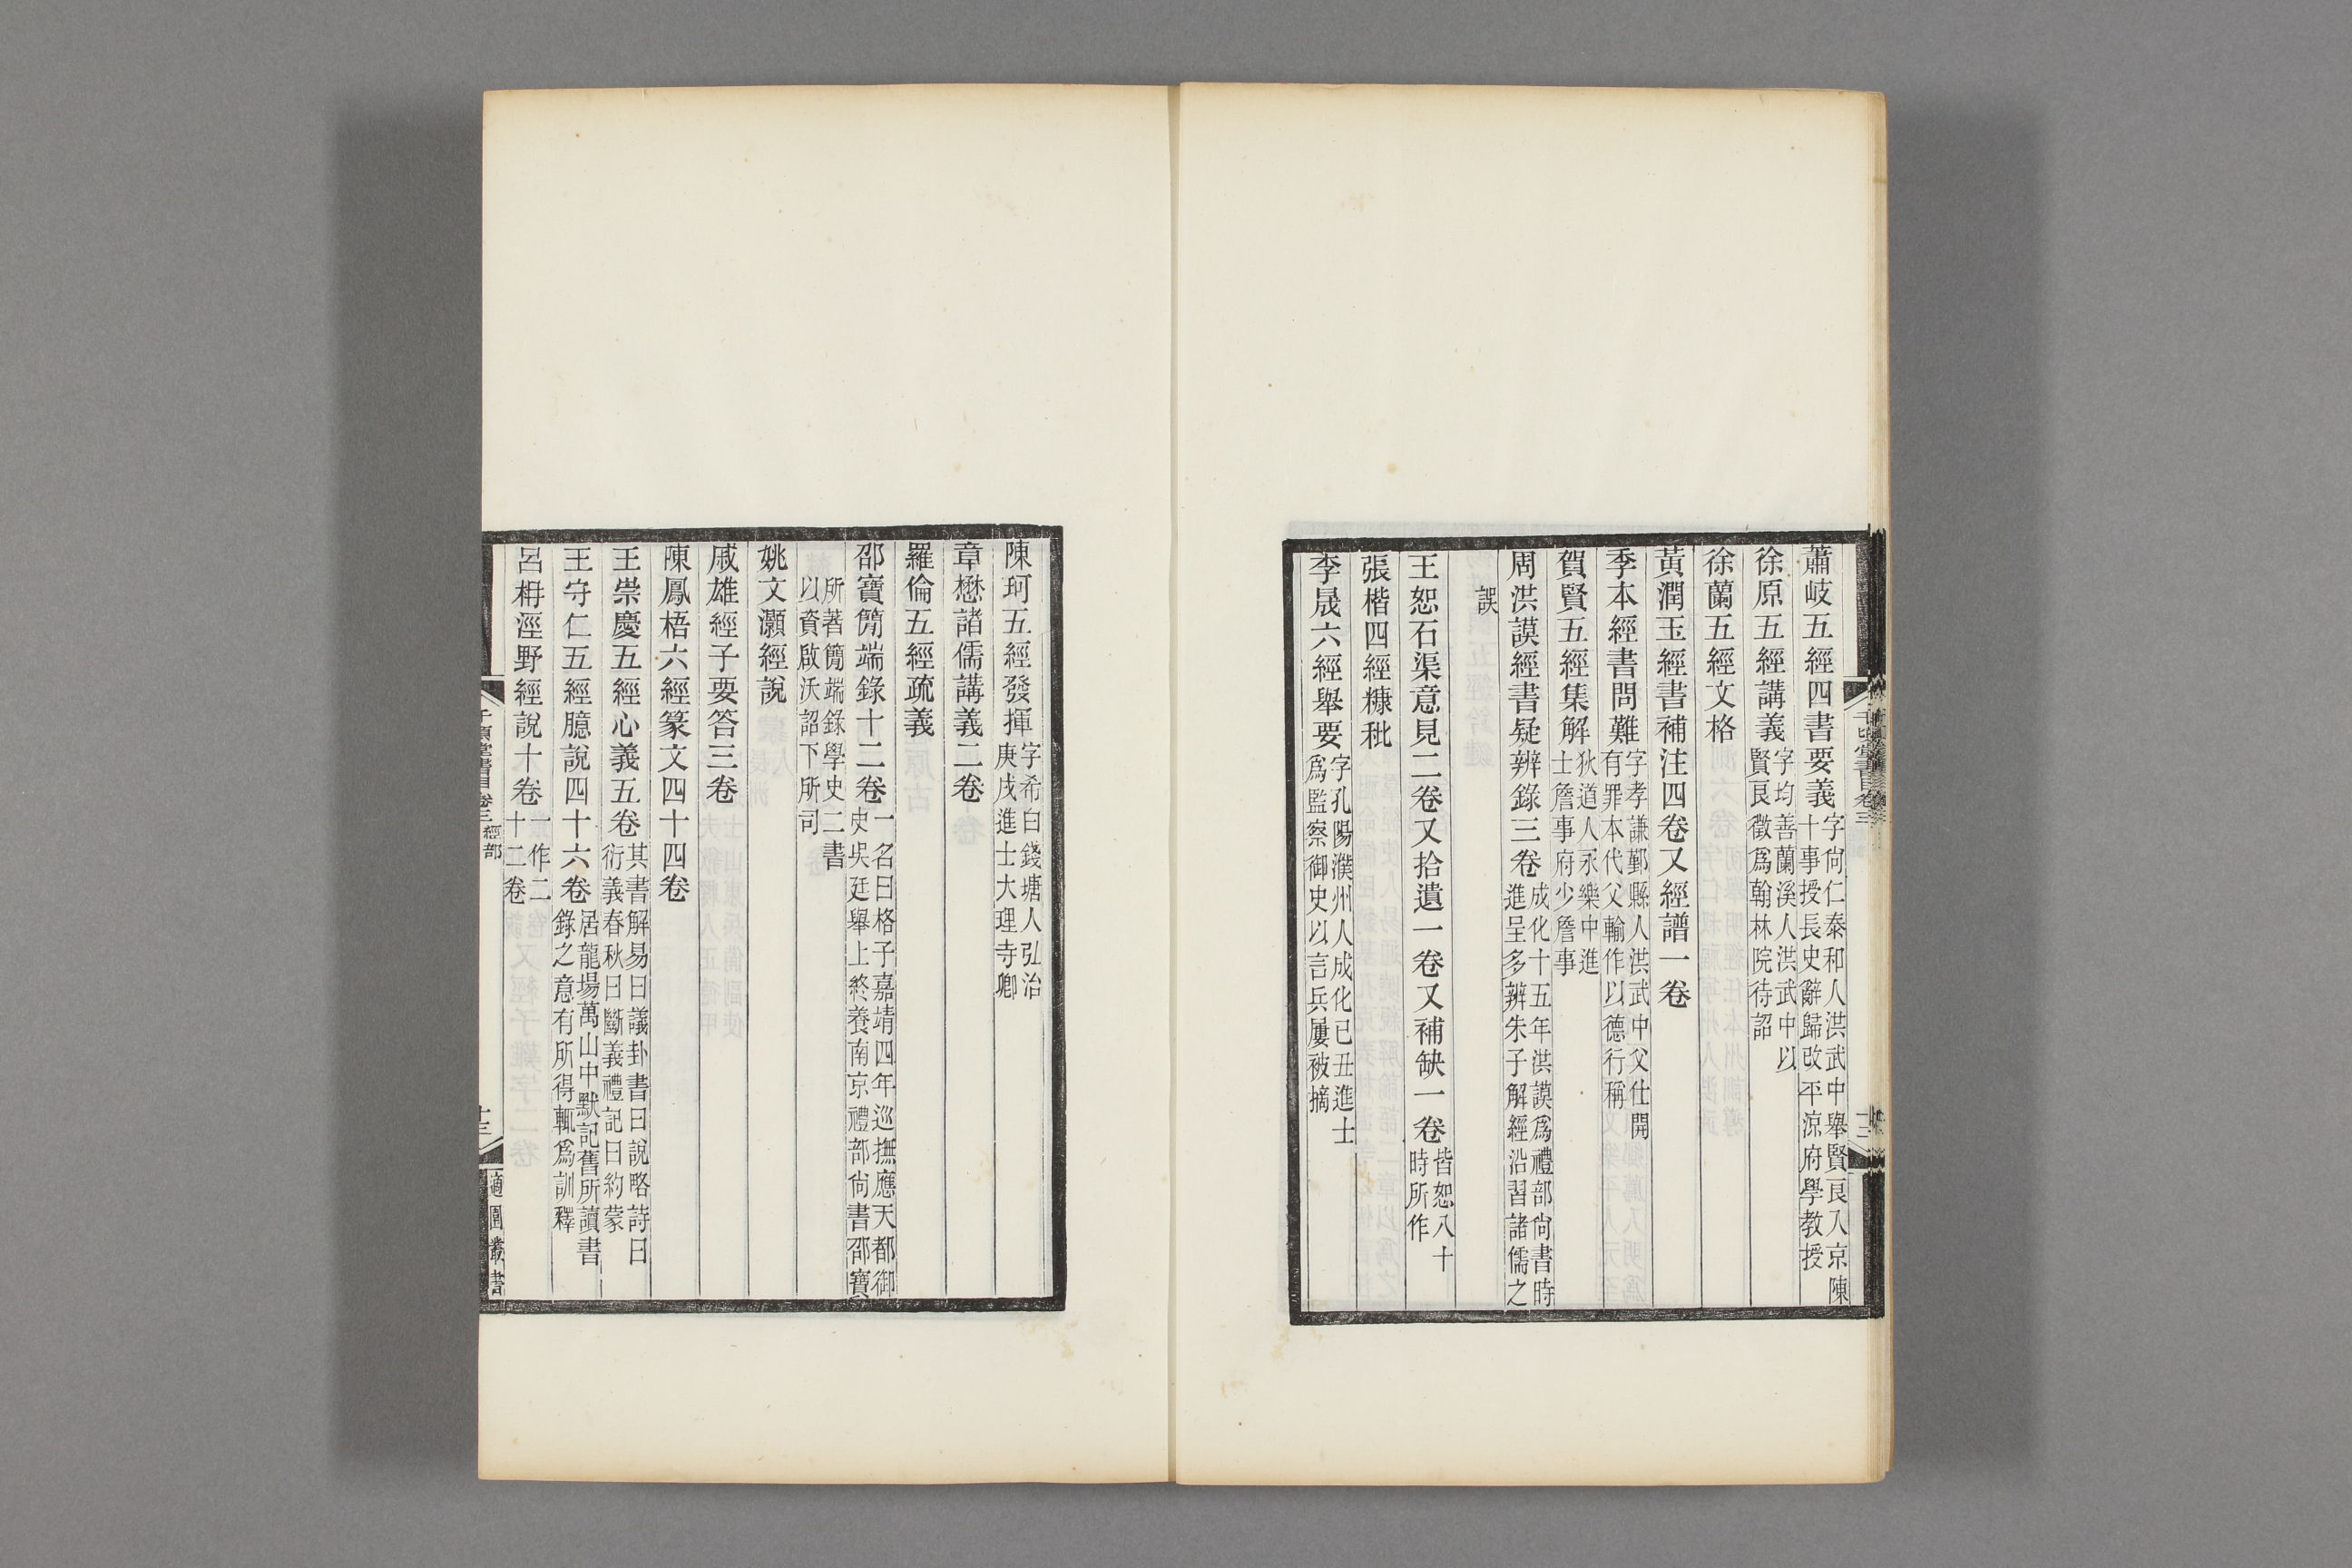 蕭岐五經四書要義字尙仁泰和人洪武中舉賢良入京陳十事授長史辭歸改平涼府學教授
徐原五經講義字均善蘭溪人洪武中以賢良徵爲翰林院待詔
徐蘭五經文格
黃潤玉經書補注四卷又經譜一卷
季本經書問難字孝謙鄞縣人洪武中父仕開有罪本代父輸作以德行稱
賀賢五經集解狄道人永樂中進士詹事府少詹事
周洪謨經書疑辨錄三卷成化十五年洪謨爲禮部尙書時進呈多辨朱子解經沿習諸儒之
誤
王恕石渠意見二卷又拾遺一卷又補缺一卷皆恕八十時所作
張楷四經糠秕
李晟六經舉要字孔陽濮州人成化己丑進士爲監察御史以言兵屢被摘
千頃堂書目卷三
陳珂五經發揮字希白錢塘人弘治庚戌進士大理寺卿
章懋諸儒講義二卷
羅倫五經疏義
邵寶簡端錄十二卷一名曰格子嘉靖四年巡撫應天都御史吳廷舉上終養南京禮部尙書邵寶
所著簡端錄學史二書以資啟沃詔下所司
姚文灝經說
戚雄經子要答三卷
陳鳳梧六經篆文四十四卷
王崇慶五經心義五卷其書解易曰議卦書曰說略詩曰衍義春秋曰斷義禮記曰約蒙
王守仁五經臆說四十六卷居龍場萬山中默記舊所讀書錄之意有所得輒爲訓釋
呂柟涇野經說十卷一作二十二卷
千頃堂書目卷三 經部
十三
適園叢書